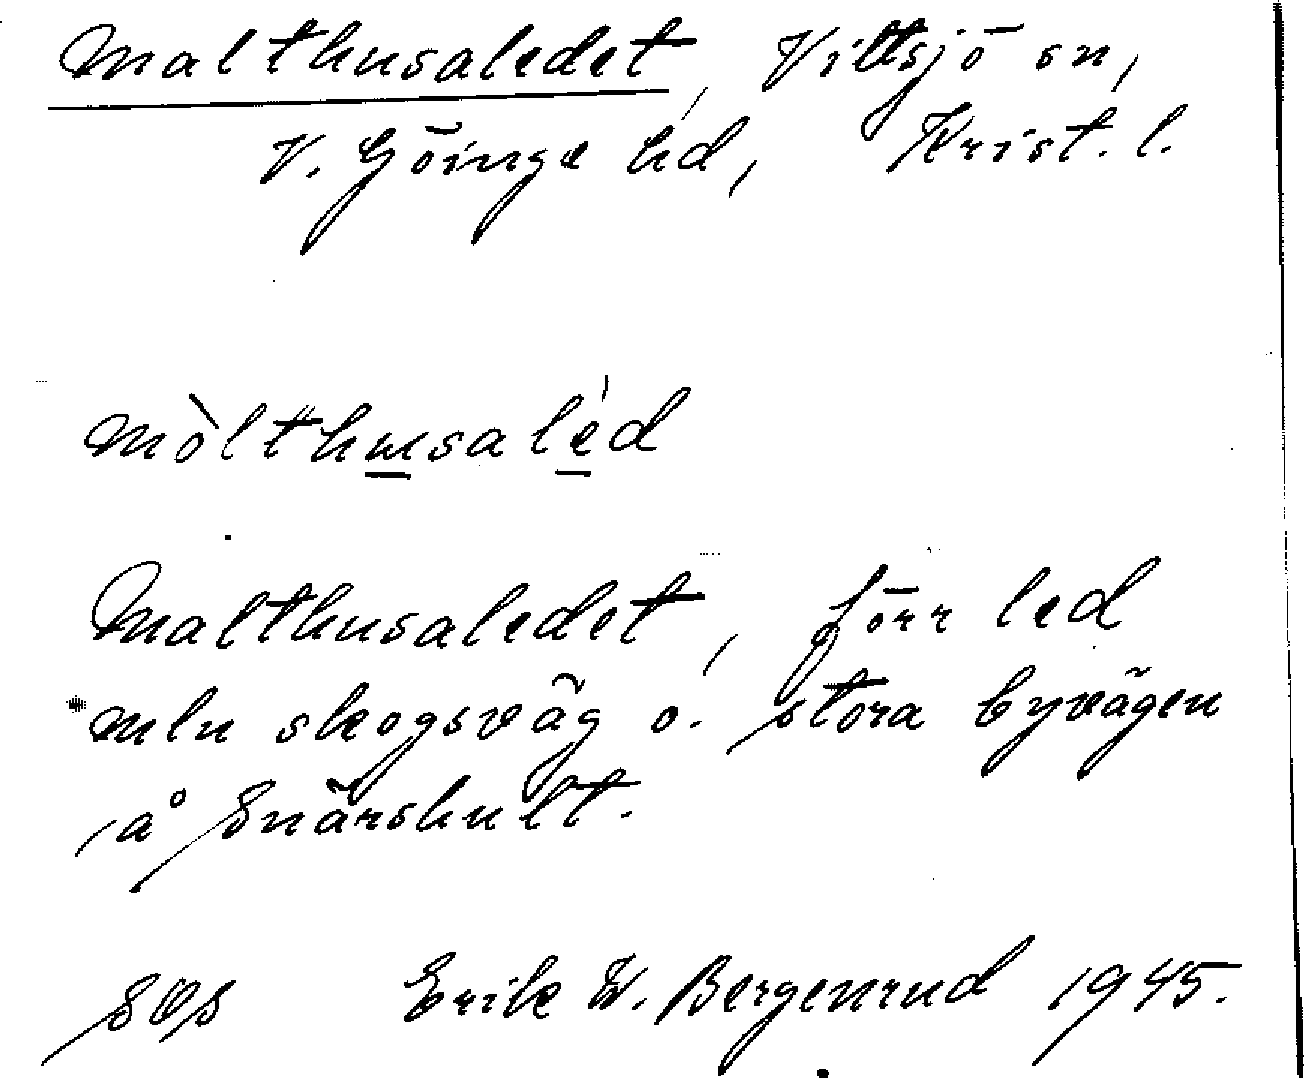 Malthusaledet, Vittsjö sn,
V. Göinge hd, Krist. l.
mòlthusaléd
Malthusaledet, förr led
mln skogsväg o. stora byvägen
å Snärshult.
SOS Erik W. Bergenrud 1945.